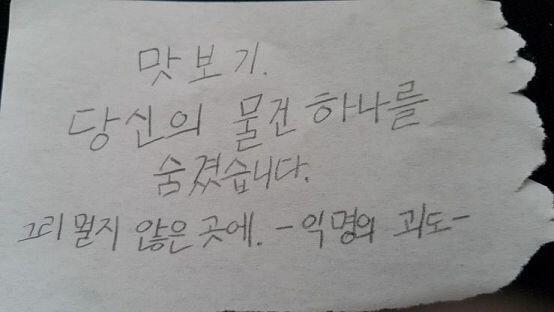 맛보기.
당신의 물건 하나를
숨겼습니다.
그리 멀지 않은 곳에. -익명의 괴도-